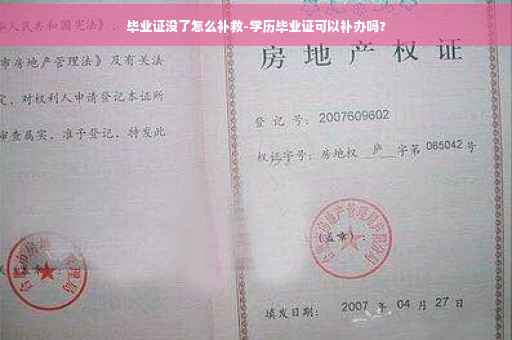 毕业证没了怎么补救-学历毕业证可以补办吗?
人民共和国宪法》、
市房地产管理法》及有关法
定,对权利人申请登记本证所
审查属实,准予登记,特发此
房地产权证
登记号:2007609602
权证字号:房地权 庐 字第 065042 号
(盖章):
填发日期: 2007 年 04 月 27 日